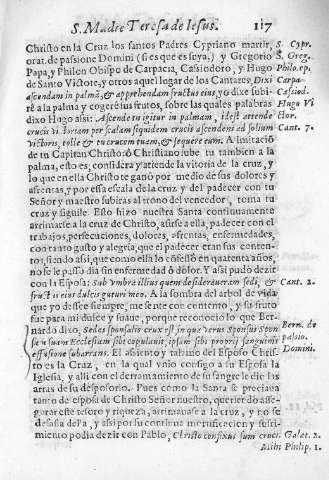 S. Madre Teresa de Iesus. 117
Christo en la Cruz los santos Padres Cypriano martir, S. Cypr.
orat. de passione Domini (si es que es suya,) y Gregorio S. Greg.
Papa, y Philon Obispo de Carpacia, Cassiodoro, y Hugo Philo. ep.
de Santo Victore, y otros aquel lugar de los Cantares, Dixi Carpa.
ascendam in palmã, & apprehendam fructus eius, yo dixe subi- Cassiod.
rè a la palma y cogerè sus frutos, sobre las quales palabras Hugo Vi
dixo Hugo assi: Ascende tu igitur in palmam, idest attende ctor.
crucis vi ctoriam per scalam siquidem crucis ascendens ad solium Cant. 7.
victoris, tolle & tu crucem tuam, & sequere eum. A imitaciõ
de tu Capitan Christo ò Christiano sube tu tambien a la
palma, esto es, considera y atiende la vitoria de la cruz, y
lo que en ella Christo te ganò por medio de sus dolores y
afrentas, y por essa escala de la cruz y del padecer con tu
Señor y maestro subiras al trono del vencedor, toma tu
cruz y siguile. Esto hizo nuestra Santa continuamente
arrimarse a la cruz de Christo, asirse a ella, padecer con el
trabajos, persecuciones, dolores, afrentas, enfermedades,
con tanto gusto y alegria, que el padecer eran sus conten-
tos, siendo assi, que como ella lo cõfessò en quarenta años,
no se le passo dia sin enfermedad ò dolor. Y assi pudo dezir
con la Esposa: Sub vmbra illius quem desideraueram sedi, & Cant. 2.
fruct is eius dulcis guturi meo. A la sombra del arbol de vida
que yo desse siempre, me sente con contento, y su fruto
fue para mi dulce y suaue, porque reconocio lo que Ber-
nardo dixo, Sedes sponsalis crux est, in qua verus Sponsus Spon Bern. de
sæ suam Ecclesiam sibi copulauit, ipsam sibi proprij sanguinis passio.
effusione subarrans. El assiento y talamo del Esposo Chris- Domini.
to es la Cruz, en la qual vnio consigo a su Esposa la
Iglesia, y alli con el derramamiento de su sangre le diò las
arras de su desposorio. Pues como la Santa se preciaua
tanto de esposa de Christo Señor nuestro, queriendo asse-
gurar este tesoro y riqueza, arrimauase a la cruz, y no se
desasia della, y assi por su continua mortificacion y sufri-
miento podia dezir con Pablo, Christo confixus sum cruci. Galat. 2.
Mihi Philip. 1.